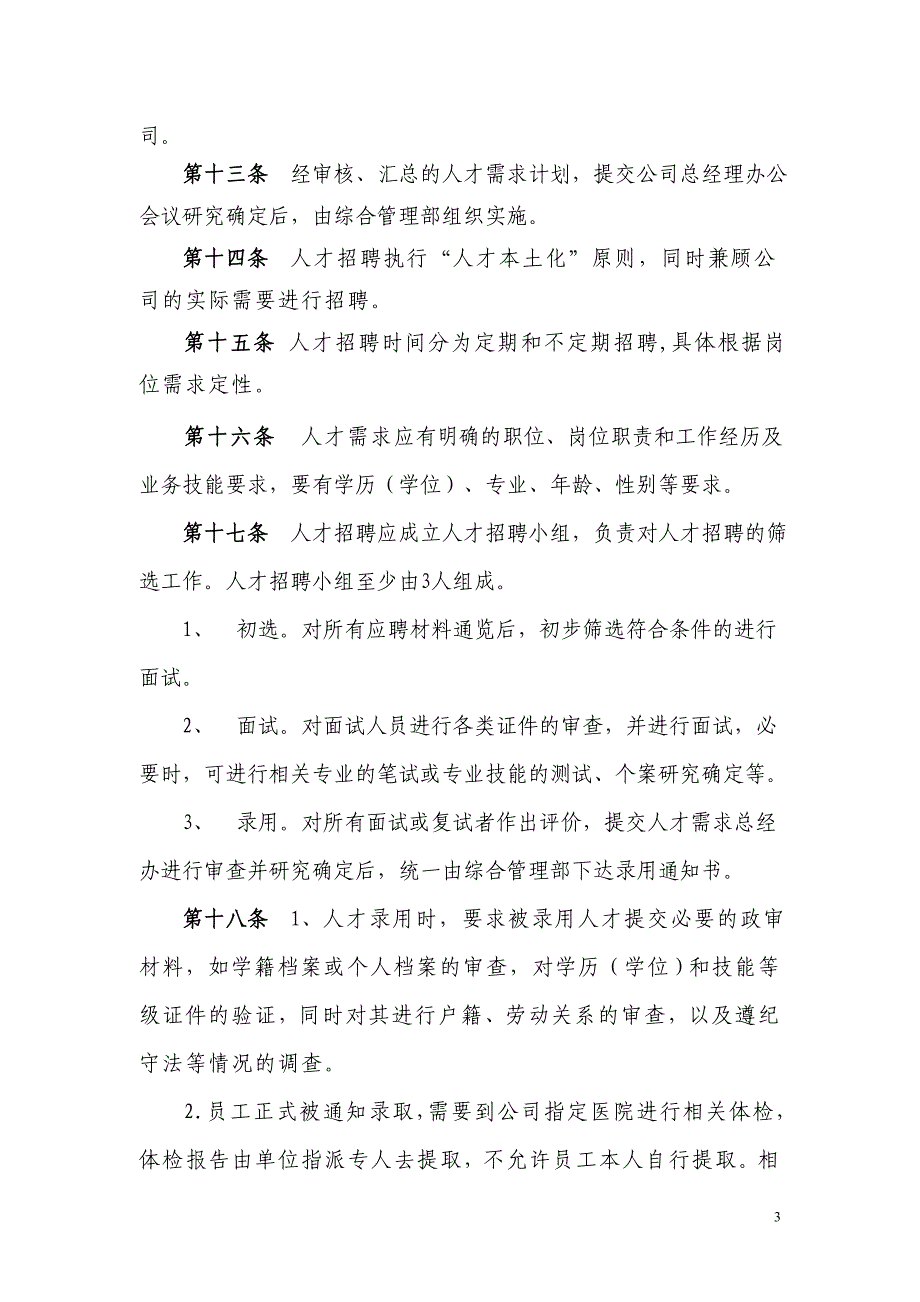 司。
第十三条　经审核、汇总的人才需求计划，提交公司总经理办公
会议研究确定后，由综合管理部组织实施。
第十四条　人才招聘执行“人才本土化”原则，同时兼顾公
司的实际需要进行招聘。
第十五条 人才招聘时间分为定期和不定期招聘,具体根据岗
位需求定性。
第十六条　人才需求应有明确的职位、岗位职责和工作经历及
业务技能要求，要有学历（学位）、专业、年龄、性别等要求。
第十七条　人才招聘应成立人才招聘小组，负责对人才招聘的筛
选工作。人才招聘小组至少由3人组成。
1、　初选。对所有应聘材料通览后，初步筛选符合条件的进行
面试。
2、　面试。对面试人员进行各类证件的审查，并进行面试，必
要时，可进行相关专业的笔试或专业技能的测试、个案研究确定等。
3、　录用。对所有面试或复试者作出评价，提交人才需求总经
办进行审查并研究确定后，统一由综合管理部下达录用通知书。
第十八条　1、人才录用时，要求被录用人才提交必要的政审
材料，如学籍档案或个人档案的审查，对学历（学位)和技能等
级证件的验证，同时对其进行户籍、劳动关系的审查，以及遵纪
守法等情况的调查。
2.员工正式被通知录取,需要到公司指定医院进行相关体检，
体检报告由单位指派专人去提取，不允许员工本人自行提取。相
3